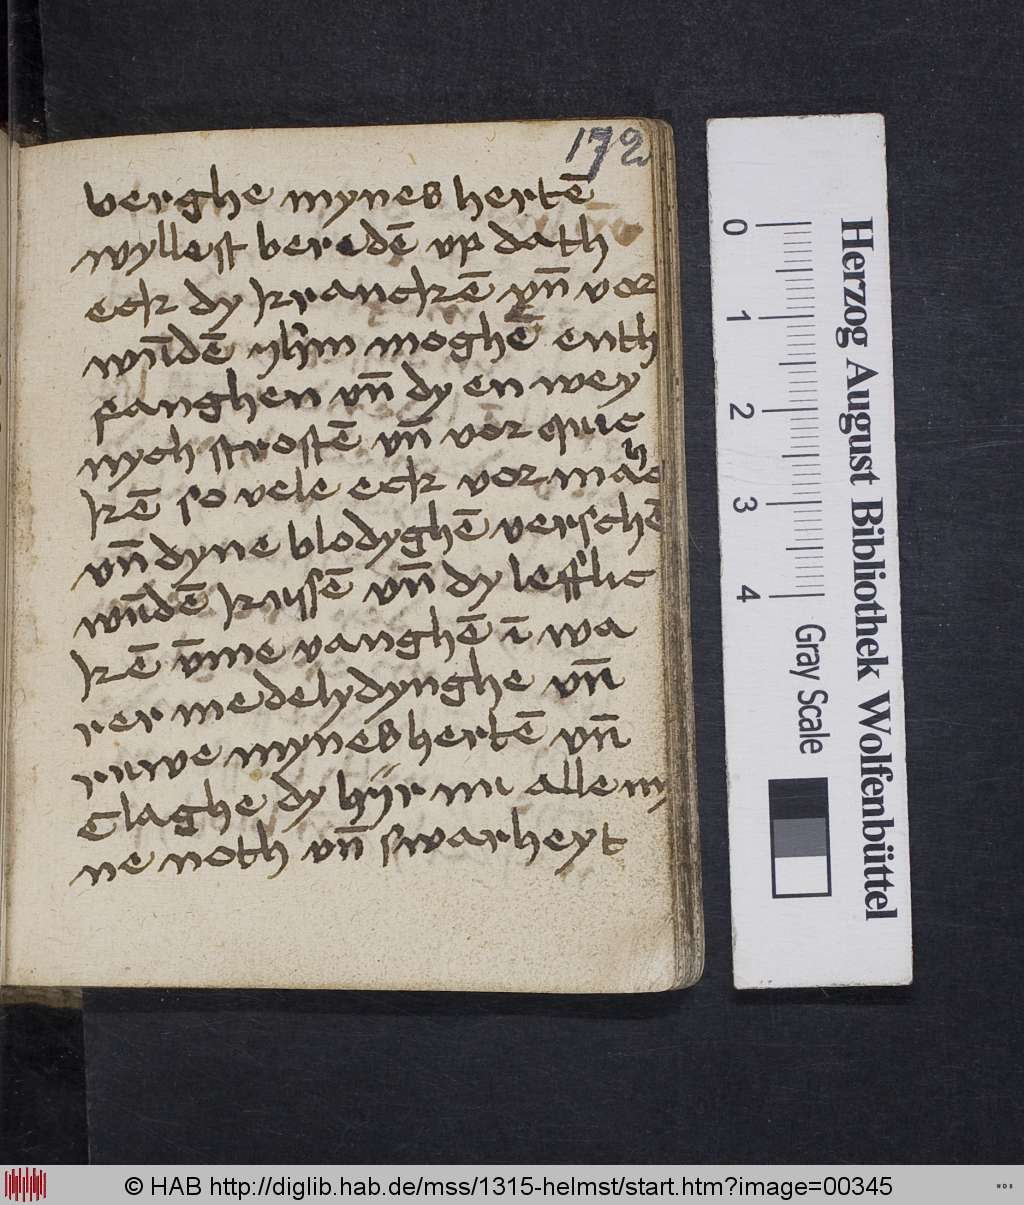 172
berghe mynes hertē
wyllest beredē vp dath
eck dy kranckē vn̄ vor
wn̄dē yhm moghē enth
fanghen vn̄ dy en wey
nych strostē vn̄ vor quic
kē so vele eck vor mach
vn̄ dyne blodyghē verschē
wn̄dē kussē vn̄ dy lefflic
kē v̄me vanghē ī wa
rer medelydynghe vn̄
ruwe mynes hertē vn̄
Claghe dy hyr nu alle my
ne noth vn̄ swarheyt
0 1 2 3 4
Gray Scale
Herzog August Bibliothek Wolfenbüttel
© HAB http://diglib.hab.de/mss/1315-helmst/start.htm?image=00345